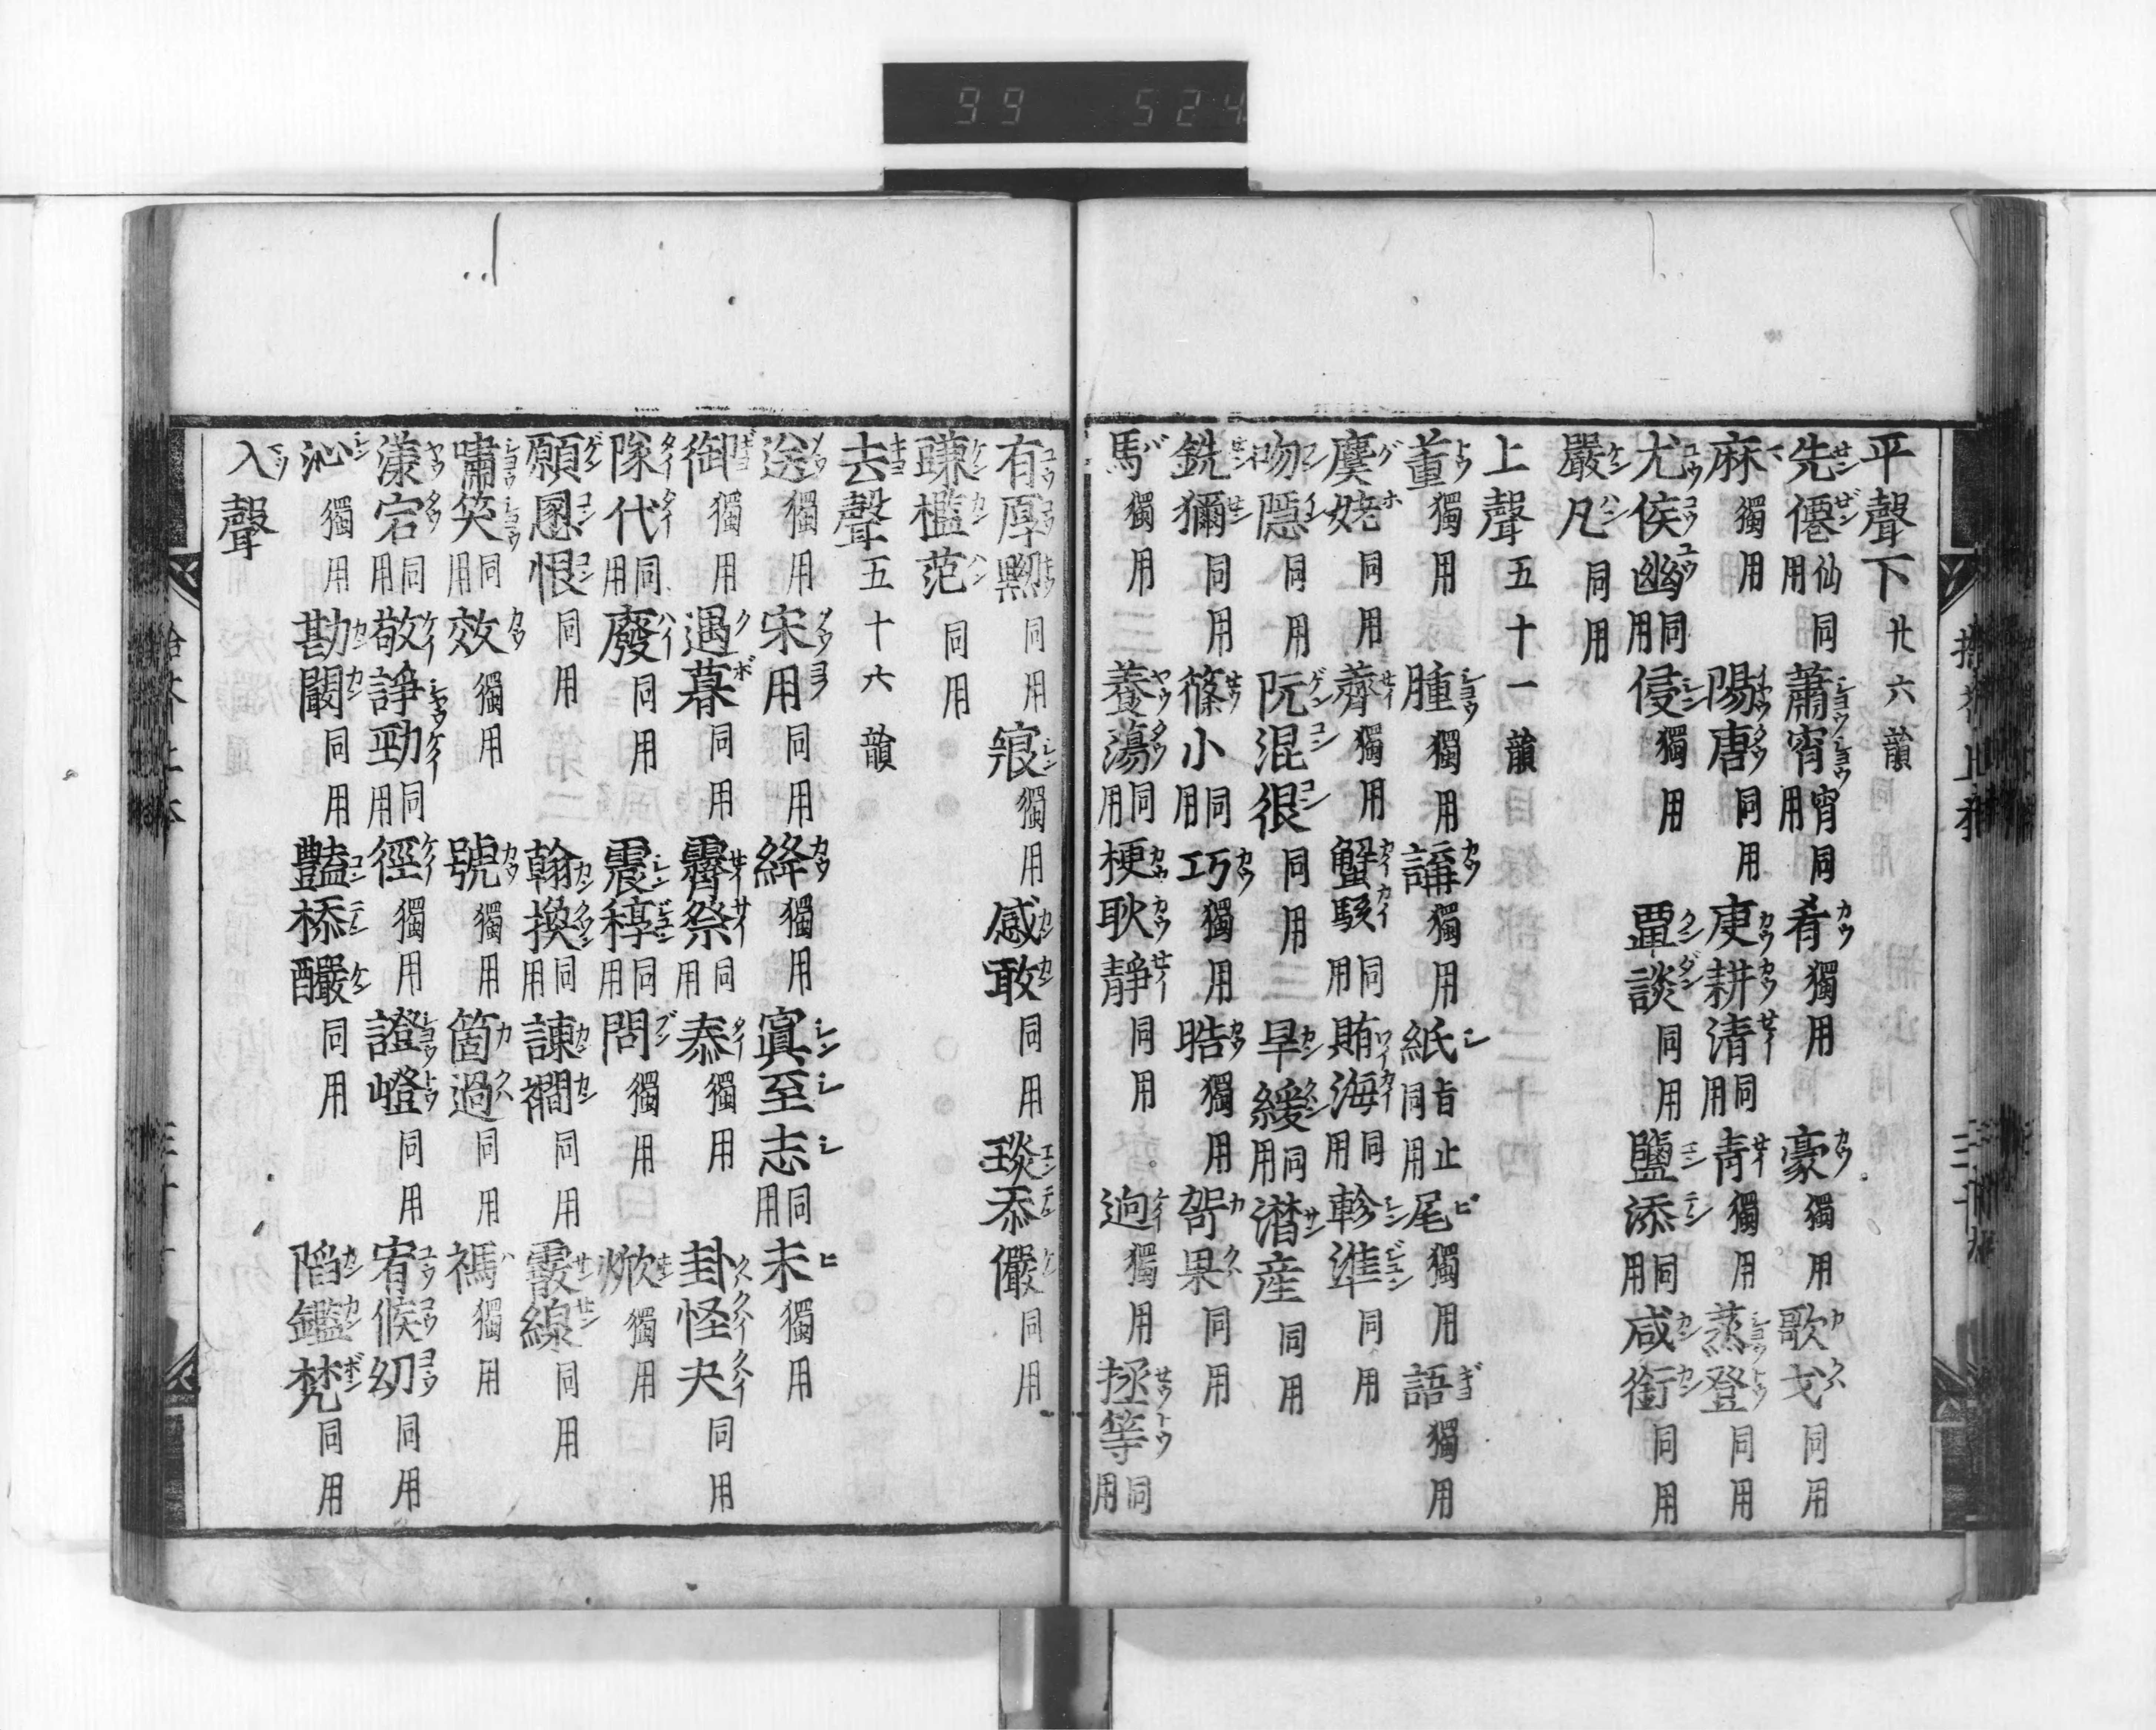 99 524
平聲下 廿六韻
先僊仙同用 蕭宵宵同用 肴獨用 豪獨用 歌戈同用
麻獨用 陽唐同用 庚耕清同用 青獨用 蒸登同用
尤侯幽同用 侵獨用 覃談同用 鹽添同用 咸銜同用
嚴凡同用
上聲五十一韻
董獨用 腫獨用 講獨用 紙旨止同用 尾獨用 語獨用
麌姥同用 薺獨用 蟹駭同用 賄海同用 軫準同用
吻隱同用 阮混很同用 旱緩同用 潸産同用
銑獮同用 篠小同用 巧獨用 晧獨用 哿果同用
馬獨用 養蕩同用 梗耿靜同用 逈獨用 拯等同用
有厚黝同用 寢獨用 感敢同用 琰忝儼同用
豏檻范同用
去聲五十六韻
送獨用 宋用同用 絳獨用 寘至志同用 未獨用
御獨用 遇暮同用 霽祭同用 泰獨用 卦怪夬同用
隊代同用 廢同用 震稕同用 問獨用 焮獨用
願慁恨同用 翰換同用 諫襇同用 霰線同用
嘯笑同用 效獨用 號獨用 箇過同用 禡獨用
漾宕同用 敬諍勁同用 徑獨用 證嶝同用 宥候幼同用
沁獨用 勘闞同用 豔㮇釅同用 陷鑑梵同用
入聲